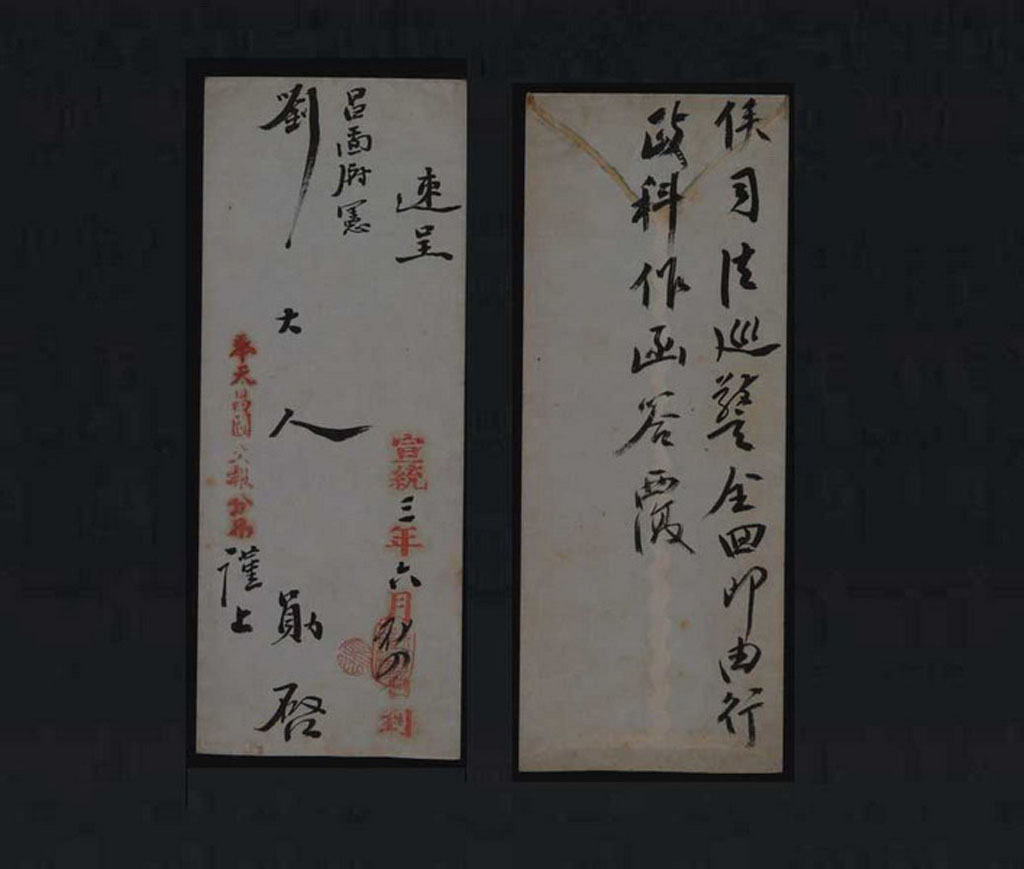 速呈
昌圖府憲
劉大人勛啓
宣統三年六月初四日到
奉天昌圖文報分局
謹上
侯司法巡警全回即由行
政科作函答覆